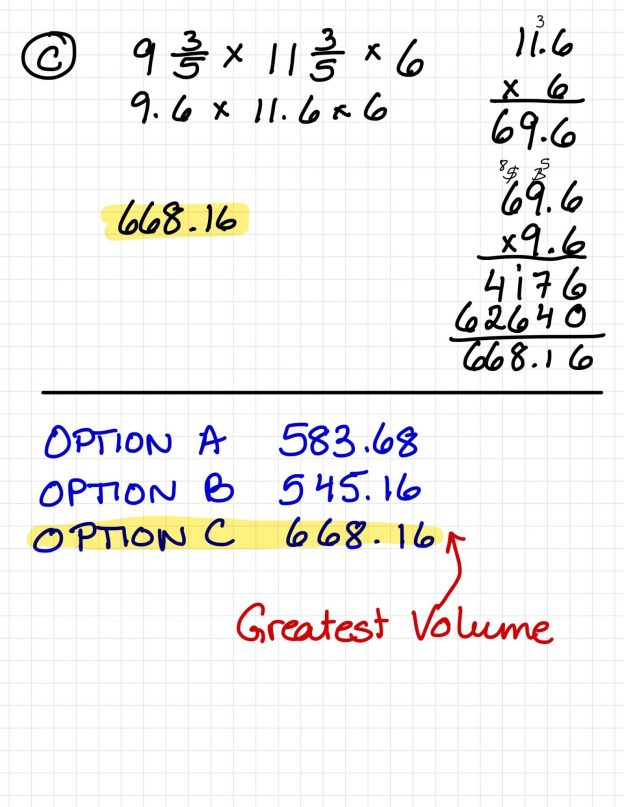 C 9 3/5 × 11 3/5 × 6
9.6 × 11.6 × 6
668.16
3
11.6
× 6
69.6
8 5 3 5
69.6
×9.6
4176
62640
668.16
OPTION A 583.68
OPTION B 545.16
OPTION C 668.16
Greatest Volume